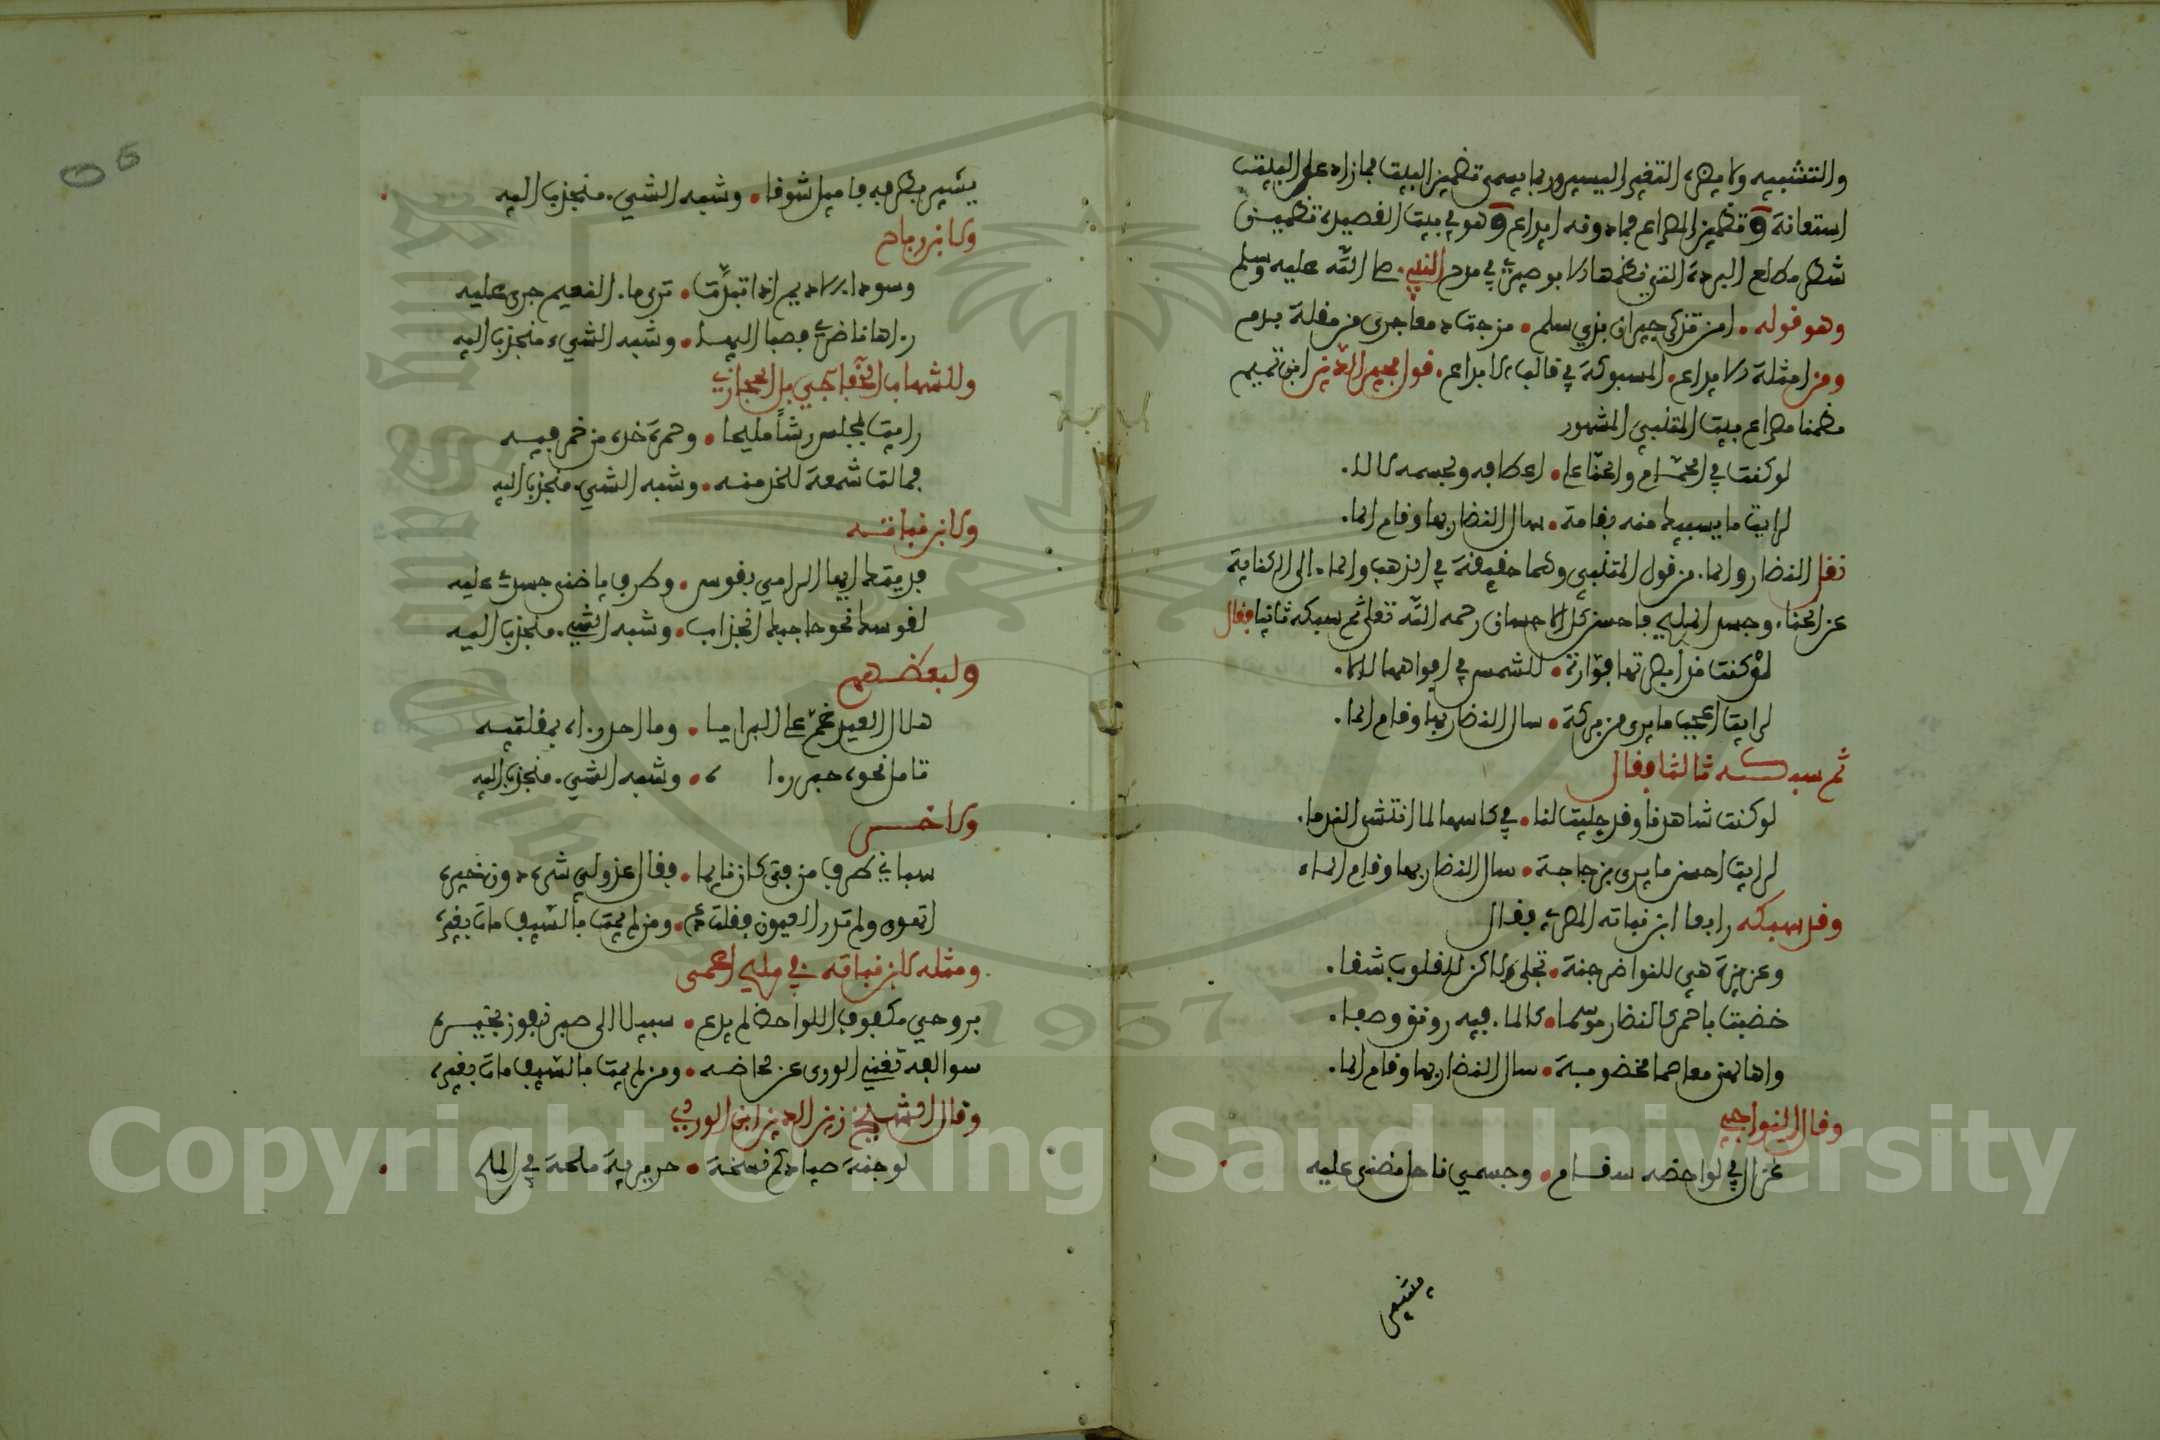 والتشبيه ولا يضره التغيير اليسير وربما يسمى تضمين البيت فما زاد على البيت
استعانة و تضمين المصراع فما دونه ايداع و هو في بيت القصيدة تضمين
شطر مطلع البردة التي نظمها الابوصيري في مدح النبي صلى الله عليه وسلم
وهو قوله امن تذكر جيران بذي سلم مزجت دمعا جرى من مقلة بدم
ومن امثلة الايداع المسبوكة في قالب الابداع قول مجير الدين ابن تميم
مضمنا مصراع بيت المتنبي المشهور
لو كنت في الحمام والحناء على اعطافه ولجسمه لالاء
لرايت ما يسبيك منه بقامة سال النضار بها وقام الماء
نقل النضار والماء من قول المتنبي وهما حقيقة في الذهب والماء الى الكناية
عن الحناء وجسد المليح فاحسن كل الاحسان رحمه الله تعلى ثم سبكه ثانيا فقال
لو كنت قد ابصرتها فوارة للشمس في امواهها لالاء
لرايت اعجب ما يرى من بركة سال النضار بها وقام الماء
ثم سبكه ثالثا فقال
لو كنت شاهدنا وقد جليت لنا في كاسها لما انتشى الندماء
لرايت احسن ما يرى بزجاجة سال النضار بها وقام الماء
وقد سبكه رابعا ابن نباته المصري فقال
وعزيزة هي للنواظر جنة تجلى ولاكن للقلوب شقاء
خضبت باحمر كالنضار موسما كالماء فيه رونق وصفاء
واها لهن معاصما مخضوبة سال النضار بها وقام الماء
وقال النواجي
غزال في لواحظه سقام وجسمي ناحل مضنى عليه
يشير
يشير بطرفه فاميل شوقا وشبه الشيء منجذب اليه
ولابن رباح
وسوداء الاديم اذا تبدت ترى ماء النعيم جرى عليه
رءاها ناظري فصبا اليها وشبه الشيء منجذب اليه
وللشهاب الخفاجي بل الحجازي
رايت بمجلس رشأ مليحا وحمرة خده من خمر فيه
فمالت شمعة للخد منه وشبه الشيء منجذب اليه
ولابن نباتة
فديتك ايها الرامي بقوس وطرف يا ضنى جسدي عليه
لقوسك نحو حاجبك انجذاب وشبه الشيء منجذب اليه
ولبعضهم
هلال العيد غم على البرايا وما احد رءاه بمقلتيه
تامل نحوه حبي رءاه وشبه الشيء منجذب اليه
ولاخر
سباني طرف من فتى كان نايما فقال عذولي شره دون خيره
اتهوى ولم تدر العيون فقلت عم ومن لم يمت بالسيف مات بغيره
ومثله لابن نباته في مليح اعمى
بروحي مكفوف اللواحظ لم يدع سبيلا الى صب يفوز بخيره
سوالفه تغني الورى عن لحاظه ومن لم يمت بالسيف مات بغيره
وقال الشيخ زين الدين ابن الوردي
1957
Copyright © King Saud University